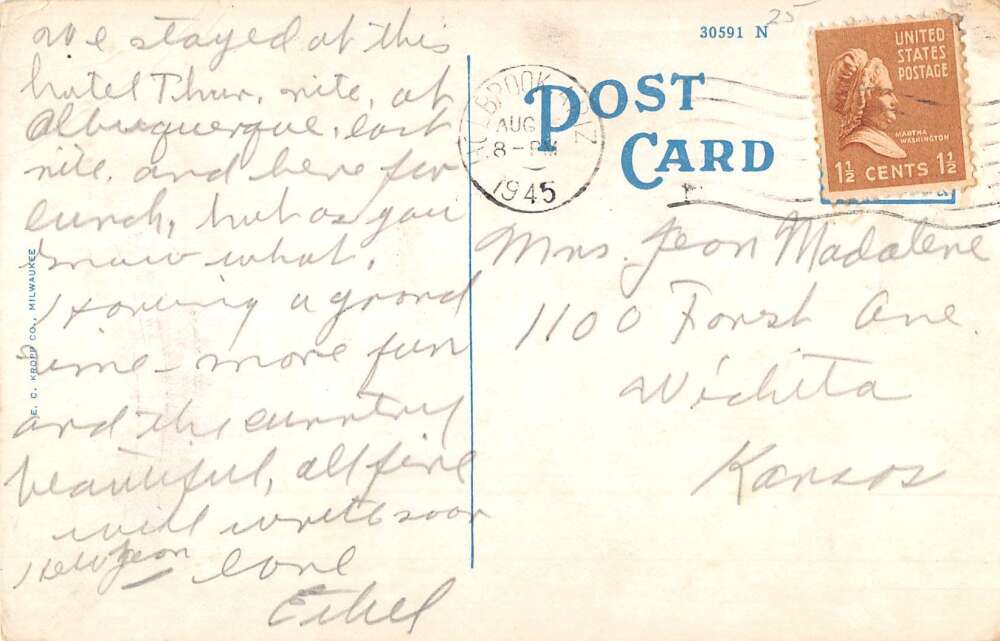 We stayed at this
hotel Thur. nite, at
Albuquerque, last
nite, and here for
lunch, but as you
know what,
Having a grand
time - more fun
and the country
beautiful, all fine
will write soon
love
Ethel
E. C. KROPP CO., MILWAUKEE
30591 N
25
POST
CARD
HOLBROOK ARIZ
AUG
8 - PM
1945
UNITED
STATES
POSTAGE
MARTHA
WASHINGTON
1½ CENTS 1½
Mrs. Jean Madalene
1100 Forest Ave.
Wichita
Kansas